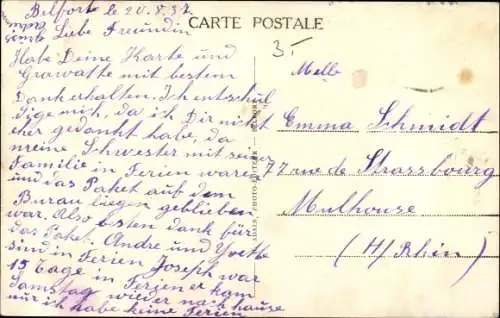 Belfort le 20.8.37
CARTE POSTALE
Liebe Freundin
3.-
Habe Deine Karte und
Grawatte mit bestem
Dank erhalten. Ich entschul
dige mich, da ich Dir nicht
eher gedankt habe, da
meine Schwester mit seiner
Familie in Ferien waren
und das Paket auf dem
Burau liegen geblieben
war. Also besten dank für
das Paket. Andre und Yvette
sind in Ferien Joseph war
15 Tage in Ferien er kam
Samstag wieder nach hause
nur ich habe keine Ferien
Melle
Emma Schmidt
77 rue de Strassbourg
Mulhouse
(H/Rhin)